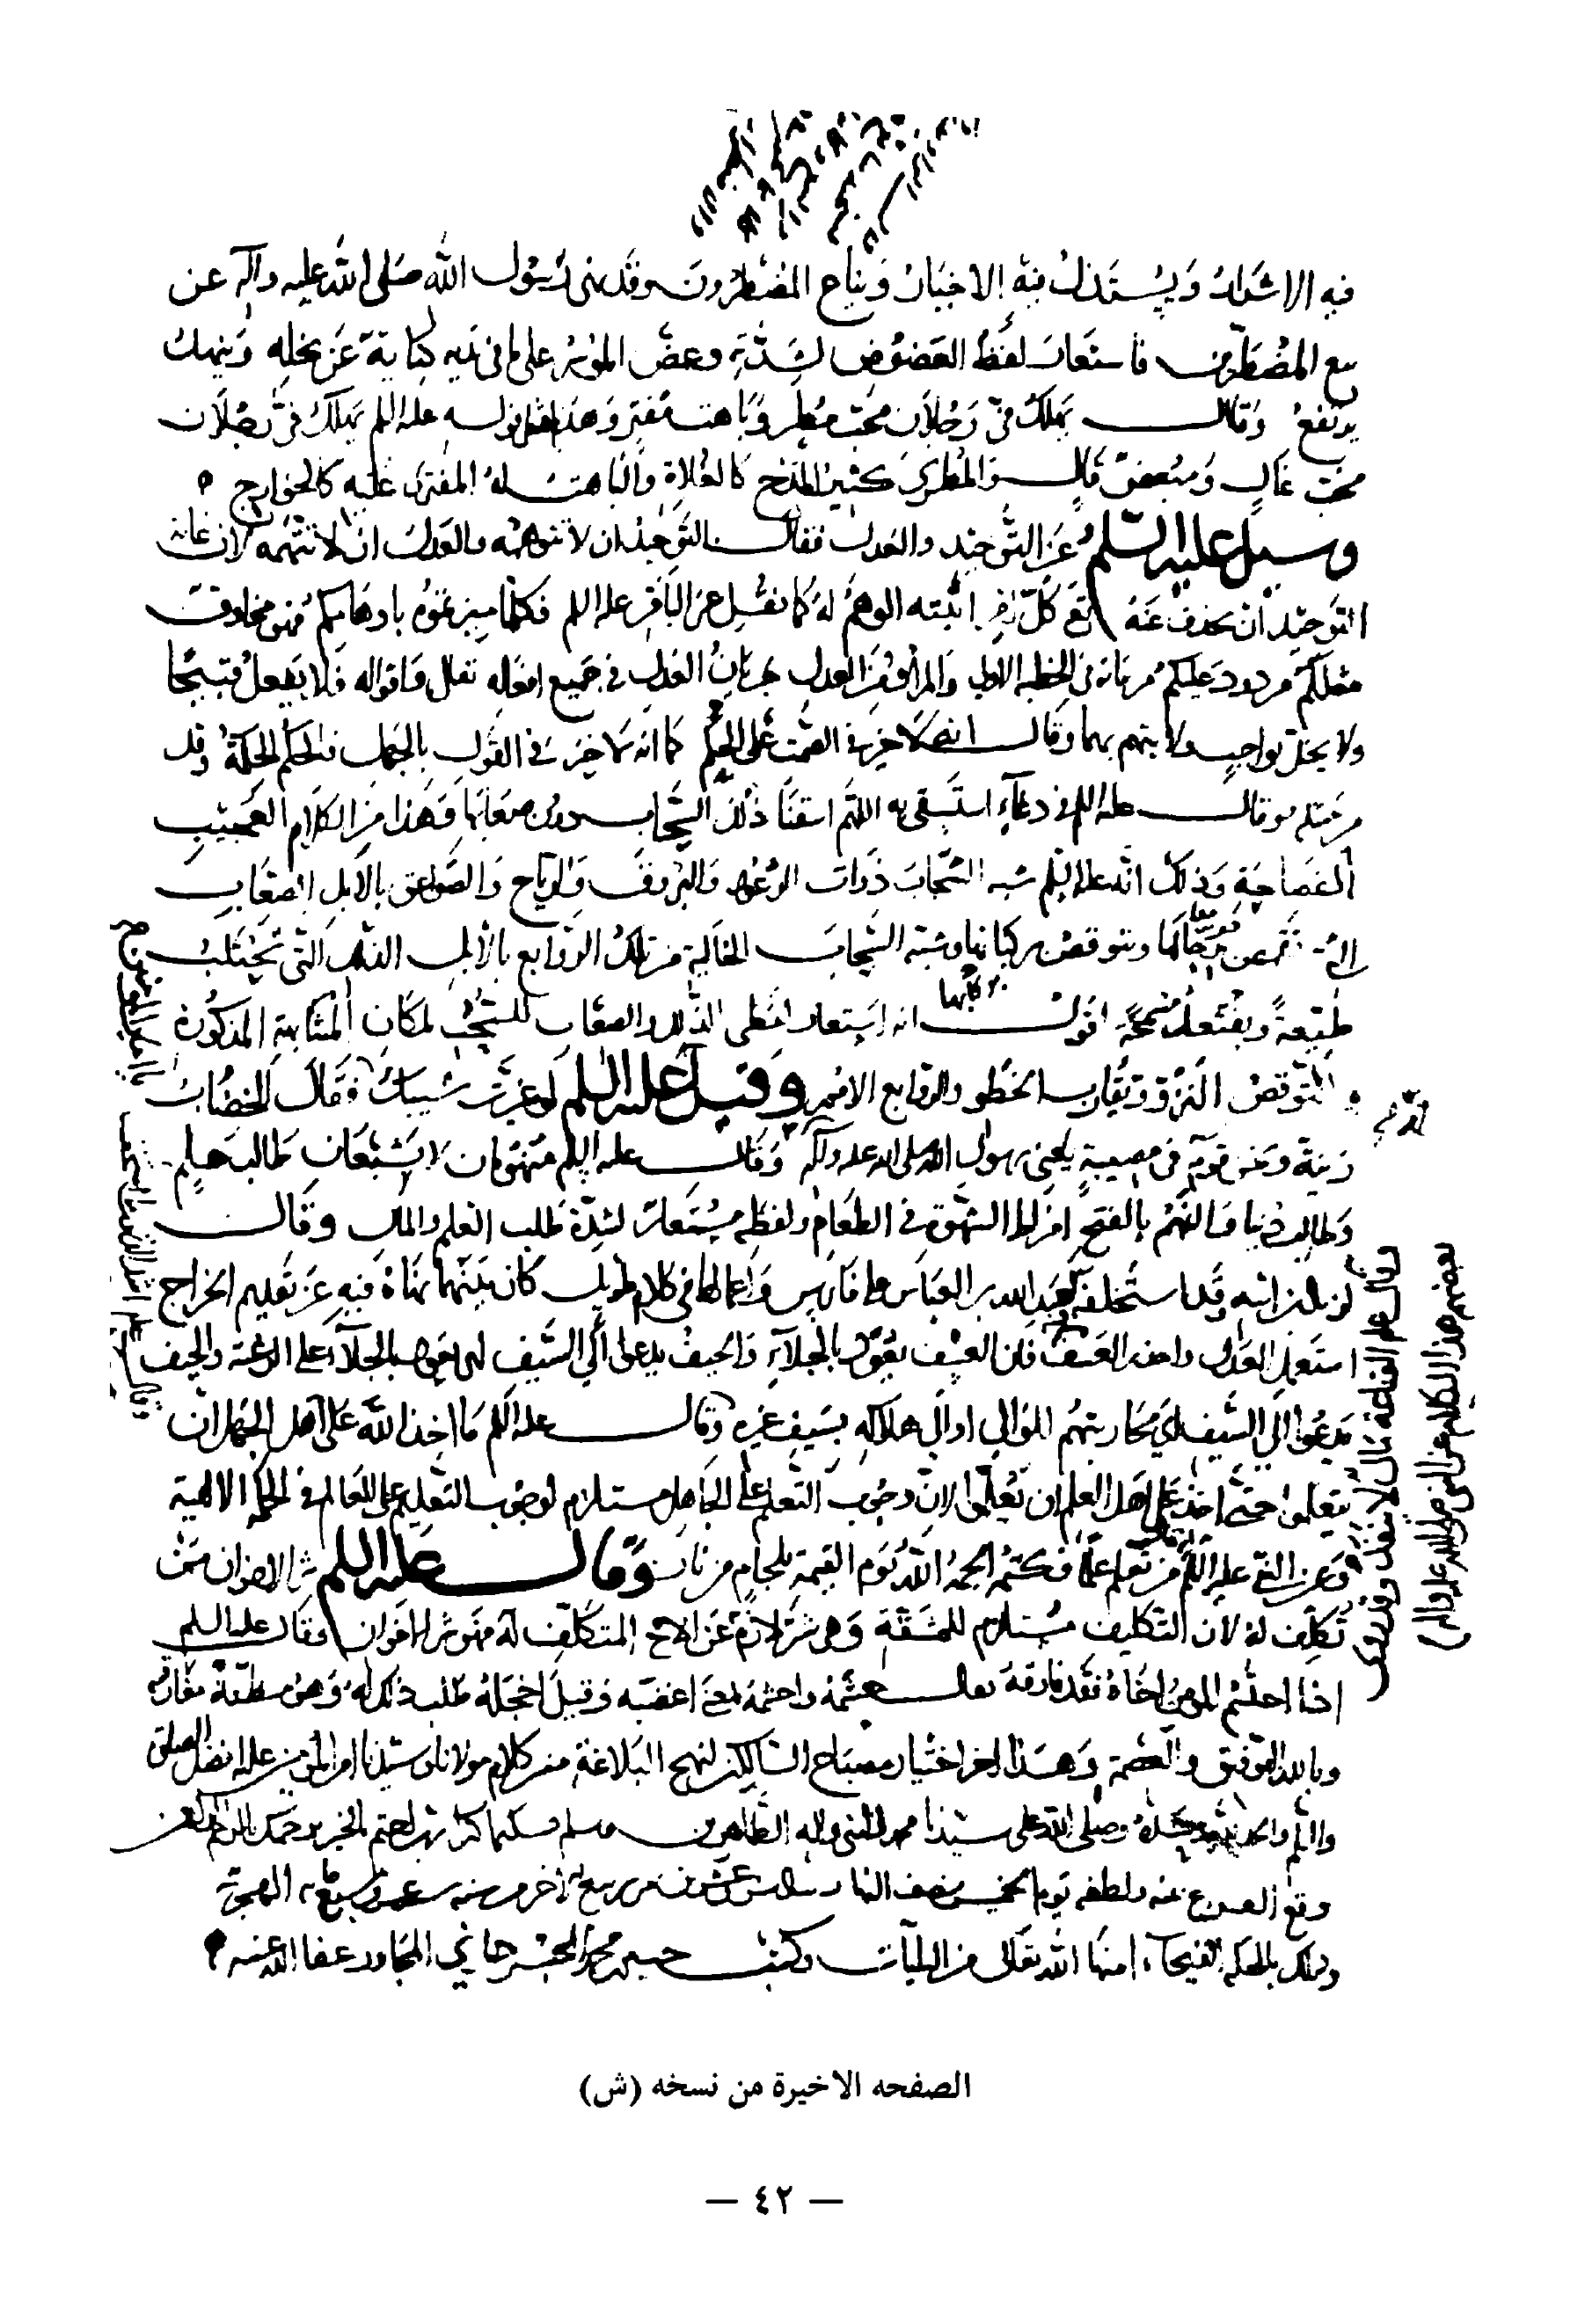 فيه الاشرار وَيُستذلّ فيه الاخيار وَيبَايع المضطرّون وقد نهى رَسُول الله صَلى الله عليه وآله عن
بيع المضطرّين فاستعار لفظ العَضوض لشدّته وعضّ الموسر على ما في يَديه كناية عَن بخله وَينهد
يرتفع وَقال يَهلك فيّ رَجُلان محبّ مُطرٍ وَبَاهت مُفترٍ وَهذا مثل قوله عليه السلم يَهلك فيّ رَجُلان
محبّ غالٍ وَمُبغض قالٍ وَالمطري كثير المدح كالغُلاة وَالبَاهت له المفتري عليه كالخوارج
وسئل عليه السّلم عَن التّوحيد والعَدل فقال التّوحيد ان لا تتوهّمه والعَدل ان لا تتّهمه لان غاية
التوحيد ان يحذف عَنهُ كلّ اثبته الوهم له كما نقل عن البَاقر عليه السلم فكلّما ميّزتموه باوهامكم فهو مخلوق
مثلكم مردود عَليكم مرّ بيانه في الخطبة الاولى وَالمراد من العدل جريان العَدل في جميع افعاله تعالى وَاقواله فلا يَفعل قبيحًا
ولا يخلّ بواجبٍ ولا يتهم بهما وقال لا خير في الصّمت عَلى الحكم كما انه لا خير في القَول بالجهل الحكم الحكمة وقد
مرّ مثله وقال عليه السلم في دعآءٍ استسقى به اللّهم اسقنَا ذُلل السّحاب دون صعَابها وَهَذا من الكلام العَجيب
الفَصاحَة وَذلك انّه عليه السّلم شبه السّحاب ذوات الرّعود وَالبروق وَالرياح وَالصّواعق بالابل الصعَاب
التى تقمص برحالها وتتوقص بركبانها وشبّه السّحاب الخالية من تلك الزوابع بالابل الذلل التّي تحتلب
طيّعةً وتقتعد مسمحةً اقول انه استعار لفظى الذّلل والصعَاب للسّحب لمكان المشابهة المذكورة
التّوقص النّزو وتقارب الخطو والزوابع وقيل له عليه السلم لو غيّرت شيبك فقال الخضاب
زينة وَنحن قوم في مصيبةٍ يعني برسُول الله صلى الله عليه وآله وَقال عليه السلم مَنهومان لا يَشبعَان طالب علمٍ
وَطالب دُنيا وَالنّهم بالفتح افراط الشّهوة في الطعَام ولفظه مُستعَار لشدّة طلب العلم والمال وقال
لزياد ابن ابيه وَقَد استَخلفه لعَبد الله بن العَبّاس على فارس وَاعمالها في كلام طويل كان بَينهما نهاهُ فيه عَن تَقديم الخراج
استَعمل العَدل واحذر العَسف فان العَسف يَعُود بالجلآءِ وَالحيف يدعو الى السّيف لان العَسف بالجلآء على الرعيّة والحيف
يَدعُوا الى السّيف اي محاربتهم للوالي او الى هلاكه بسَيف غيره وَقال عليه السلم مَا اخذ الله عَلى اهل الجهل ان
يتعلموا حتّى اخذ عَلى اهل العلم ان يُعلّموا لانّ وجوب التّعلم على الجاهل مستلزم لوجوب التعليم على العالم في الحكمة الالهية
وَعن النّبي عليه السّلم من تعلم علمًا فكتمه الجمه الله يَوم القيمة بلجامٍ من نارٍ وَقال عليه السلم شرّ الاخوان مَن
تُكلّف له لان التّكليف مُستلزم للمشقّة وَهو شرّ لازمٌ عَن الاخ المتكلّف لهُ فهو شرّ الاخوان وقال عليه السلم
اذا احتشم المؤمن اخاهُ فقد فارقه يقال حشمهُ واحشمهُ بمعنى اغضبه وَقيل اخجله طلب ذلك له وَهو مظنّة مفارقته
وبالله التوفيق والعصمة وَهَذا اخر اختيار مصباح السّالكين لنهج البَلاغة من كلام مولانا وسيّدنا امير المؤمنين عليه افضل الصلوة
والسّلم والحمد لله وحده وصلى الله على سيّدنا محمد النبي وآله الطّاهرين وسلم تسليمًا كثيرا
وقع الفروغ عنه يوم الخميس نصف النهار سادس عشرين من ربيع الاخر من سنه الهجرية
وذلك بالحلّة الفيحآء امنها الله تعَالى من البليّات وكتب حسين محمد الجاور عفا الله عنه
وقال عليه السلم القناعة مال لا ينفد وقد روى
بعضهم هذا الكلام عن النبي صلى الله عليه واله
الصفحه الاخيرة من نسخه (ش)
— ٤٢ —